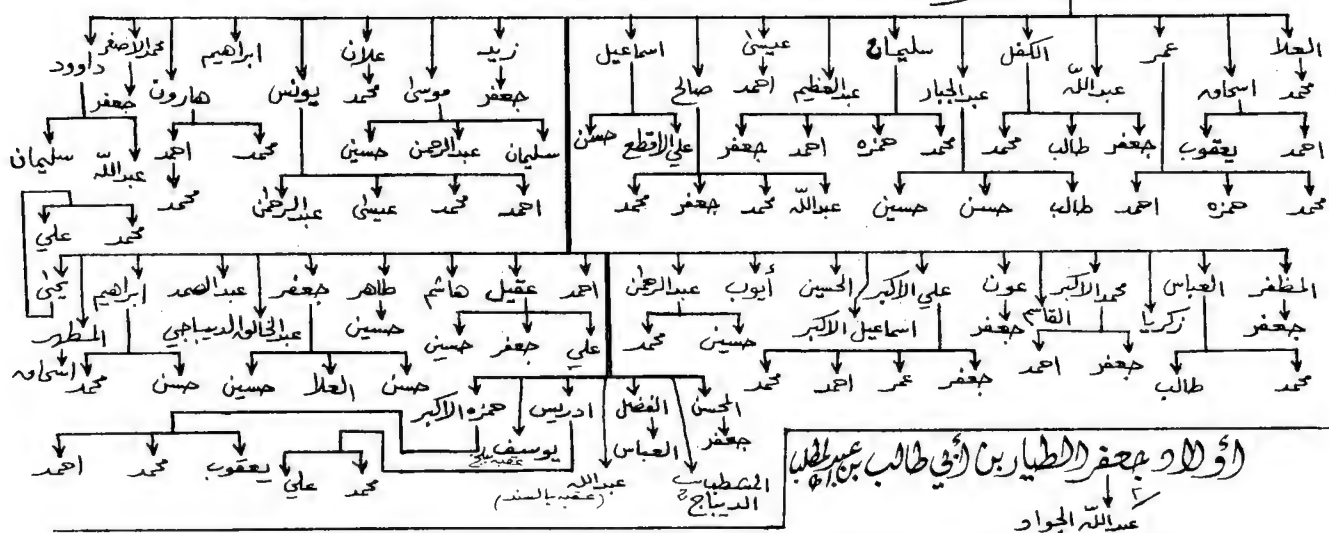 العلا عمر الكفل سليمان عيسى اسماعيل زيد علان ابراهيم محمد الاصغر
محمد اسحاق عبدالله عبدالجبار عبدالعظيم احمد صالح جعفر موسى محمد يونس هارون جعفر داوود
احمد يعقوب جعفر طالب محمد محمد همزه احمد جعفر علي الاقطع حسن سليمان عبدالرحمن حسين محمد احمد عبدالله سليمان
محمد همزه احمد طالب حسن حسين عبدالله محمد جعفر محمد احمد محمد عيسى عبدالرحمن محمد
محمد علي
المظفر العباس محمد الاكبر عون علي الاكبر الحسين أيوب عبدالرحمن احمد عقيل هاشم طاهر جعفر عبدالصمد ابراهيم يحيى
جعفر زكريا القاسم جعفر اسماعيل الاكبر حسين عبدالخالق الديباجي المطهر
محمد طالب جعفر احمد جعفر عمر احمد محمد حسين محمد علي جعفر حسين حسن العلا حسين حسن محمد اسحاق
المحسن الفضل ادريس همزه الاكبر
جعفر العباس يوسف
عقبه بلخ
محمد علي يعقوب محمد احمد
الديباج عبدالله
(عقبه بالسند)
أولاد جعفر الطيار بن أبي طالب بن عبدالمطلب
عبدالله الجواد